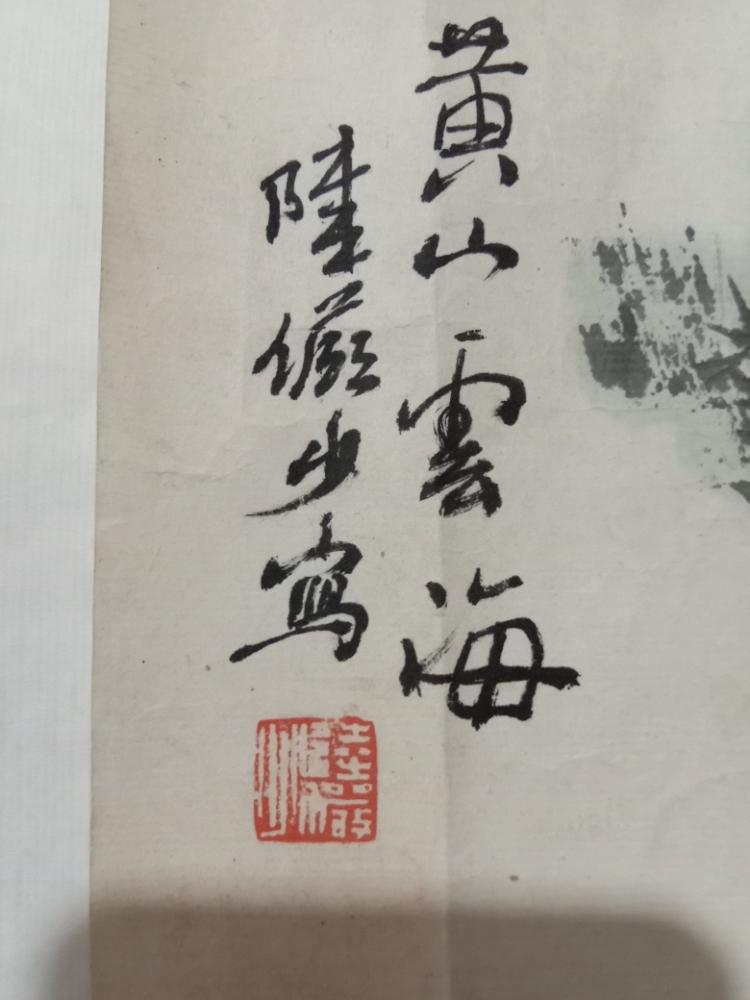 黄山雲海
陸儼少寫